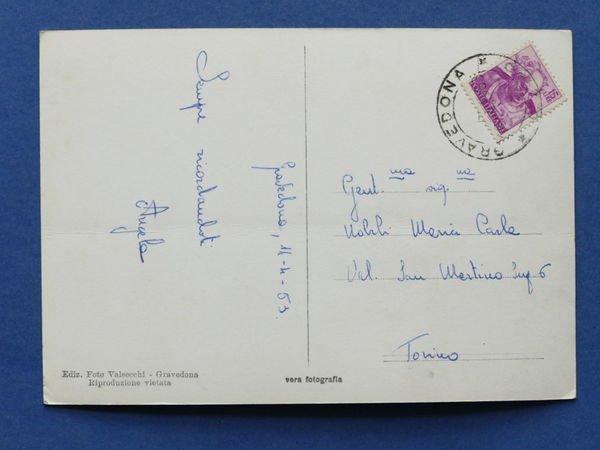 Sempre ricordandoti
Angela
Gravedona, 14-4-63.
GRAVEDONA * GRAVEDONA *
Gent.ma sig.na
Maria Carla
Val. San Martino Sup. 6
Torino
Ediz. Foto Valsecchi - Gravedona
Riproduzione vietata
vera fotografia